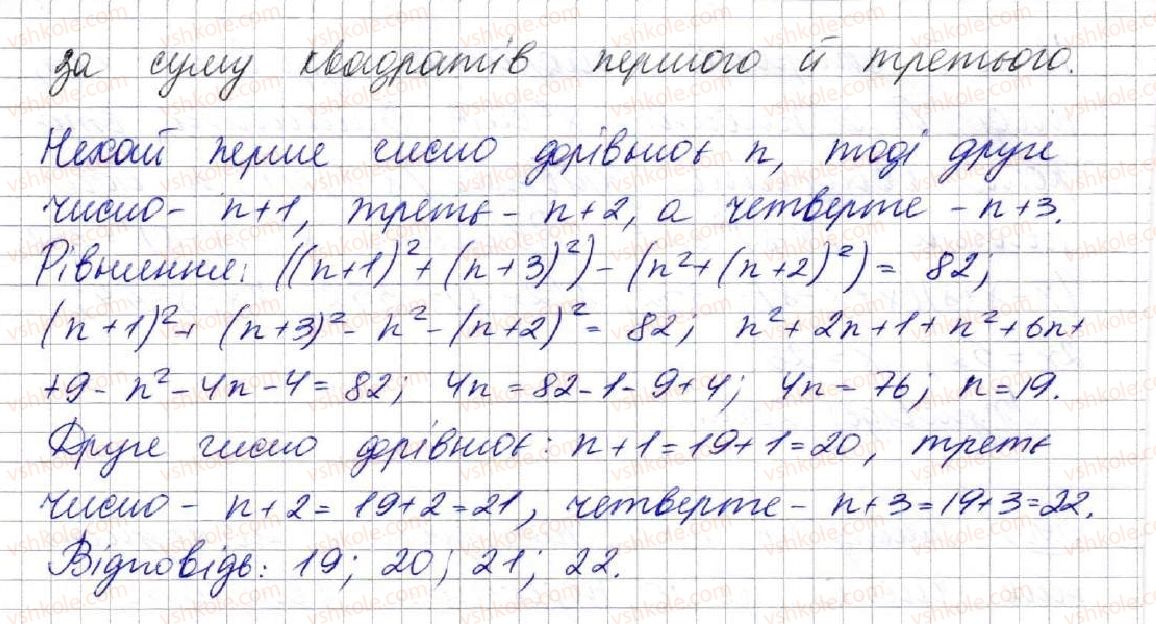 за суму квадратів першого й третього.
Нехай перше число дорівнює n, тоді друге
число - n+1, третє - n+2, а четверте - n+3.
Рівняння: ((n+1)²+(n+3)²)-(n²+(n+2)²)= 82;
(n+1)²+ (n+3)²- n²-(n+2)²= 82; n²+2n+1+n²+6n+
+9-n²-4n-4=82; 4n=82-1-9+4; 4n=76; n=19.
Друге число дорівнює: n+1=19+1=20, третє
число - n+2=19+2=21, четверте - n+3=19+3=22.
Відповідь: 19; 20; 21; 22.